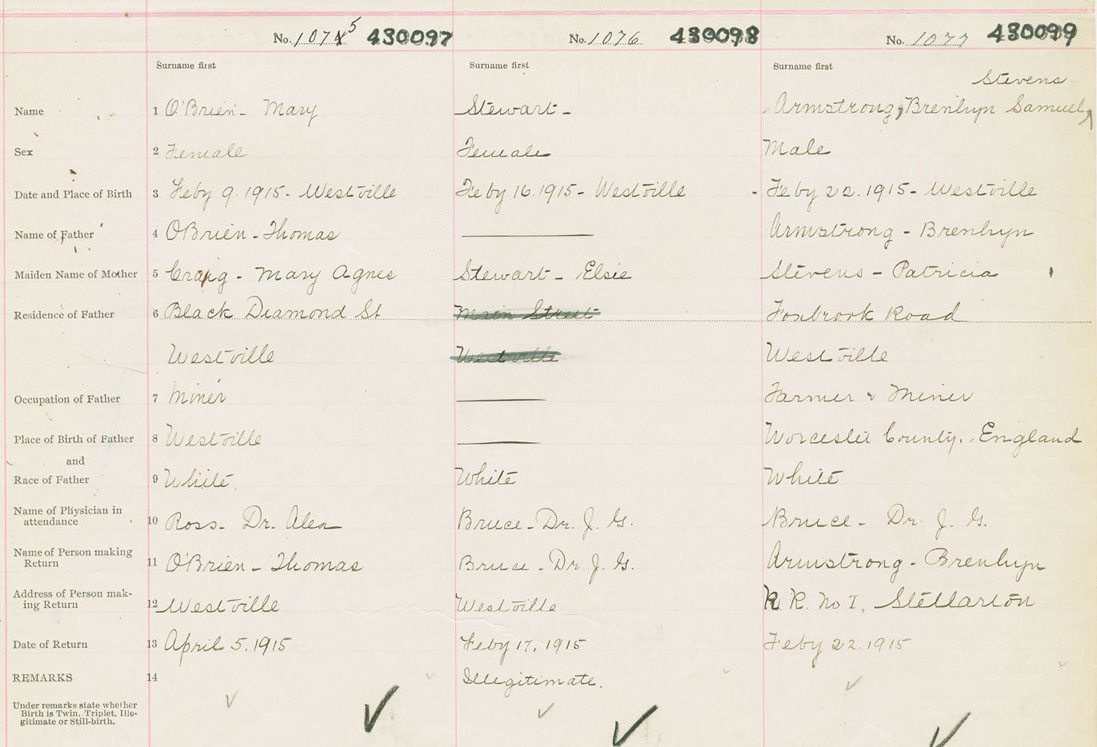 No. 1075 430097 No. 1076 430098 No. 1077 430099
Surname first Surname first Surname first
Stevens
Name 1 O'Brien - Mary Stewart - Armstrong, Brenhyn Samuel
Sex 2 Female Female Male
Date and Place of Birth 3 Feby 9. 1915 - Westville Feby 16. 1915 - Westville - Feby 22. 1915 - Westville
Name of Father 4 O'Brien - Thomas Armstrong - Brenhyn
Maiden Name of Mother 5 Craig - Mary Agnes Stewart - Elsie Stevens - Patricia
Residence of Father 6 Black Diamond St Main Street Foxbrook Road
Westville Westville Westville
Occupation of Father 7 Miner Farmer & Miner
Place of Birth of Father 8 Westville Worcester County. England
and
Race of Father 9 White. White White
Name of Physician in
attendance 10 Ross - Dr. Alex Bruce - Dr. J. G. Bruce - Dr. J. G.
Name of Person making
Return 11 O'Brien - Thomas Bruce - Dr. J. G. Armstrong - Brenhyn
Address of Person mak-
ing Return 12 Westville Westville R R. No 1, Stellarton
Date of Return 13 April 5. 1915 Feby 17, 1915 Feby 22. 1915
REMARKS 14 Illegitimate.
Under remarks state whether
Birth is Twin, Triplet, Ille-
gitimate or Still-birth.